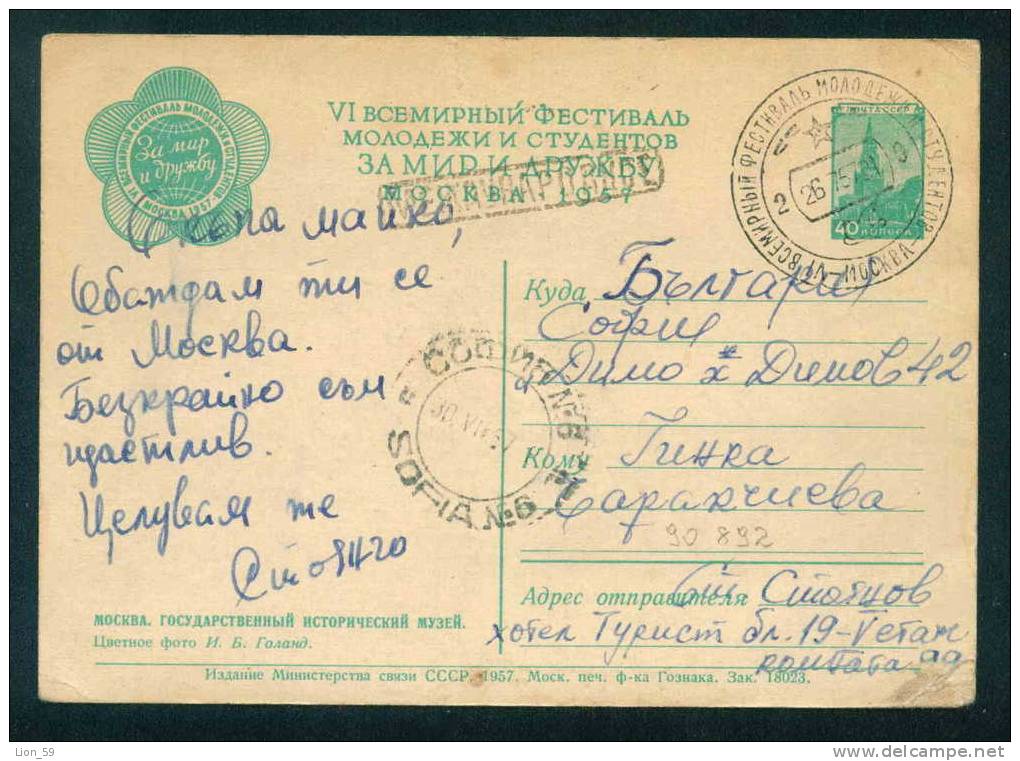 VI ВСЕМИРНЫЙ ФЕСТИВАЛЬ МОЛОДЕЖИ И СТУДЕНТОВ
За мир
и дружбу
МОСКВА 1957
VI ВСЕМИРНЫЙ ФЕСТИВАЛЬ
МОЛОДЕЖИ И СТУДЕНТОВ
ЗА МИР И ДРУЖБУ
МОСКВА 1957
VI ВСЕМИРНЫЙ ФЕСТИВАЛЬ МОЛОДЕЖИ И СТУДЕНТОВ — МОСКВА
ПОЧТА СССР
40 КОПЕЕК
майко,
Обаждам ти се
от Москва.
Безкрайно съм
щастлив.
Целувам те
Стоянчо
Куда България
София
Димо х Динов 42
Кому Гинка
Саракчиева
90 892
SOFIA №6
30 VII 57
Адрес отправителя: от Стоянов
хотел Турист бл. 19-V етаж
МОСКВА. ГОСУДАРСТВЕННЫЙ ИСТОРИЧЕСКИЙ МУЗЕЙ.
Цветное фото И. Б. Голанд.
Издание Министерства связи СССР. 1957. Моск. печ. ф-ка Гознака. Зак. 18023.
Lion_59
http://www.delcampe.net